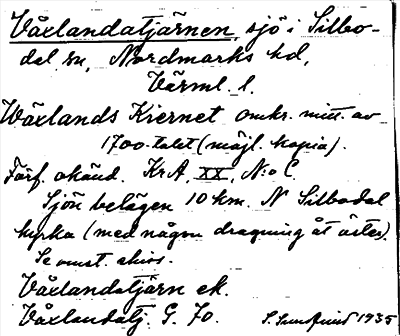 Växlandatjärnen, sjö i Silbo-
dal sn, Nordmarks hd,
Värml. l.
Wäxlands Kiernet omkr. mitt. av
1700-talet (möjl. kopia).
Förf. okänd. KrA, XX, N:o C.
Sjön belägen 10 km. N Silbodal
kyrka (med någon dragning åt öster).
Se omst. skiss.
Växlandatjärn ek.
Växlandatj. G. 70.
S. 1935